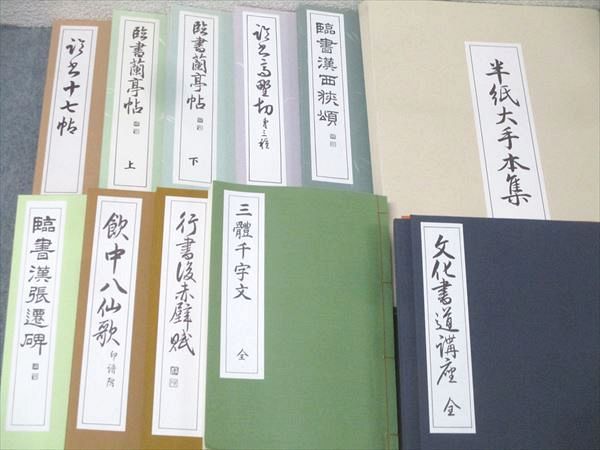 臨書十七帖
臨書蘭亭帖
上
臨書蘭亭帖
下
臨書高野切
第三種
臨書漢西狭頌
半紙大手本集
臨書漢張遷碑
飲中八仙歌
印譜附
行書後赤壁賦
三體千字文
全
文化書道講座
全